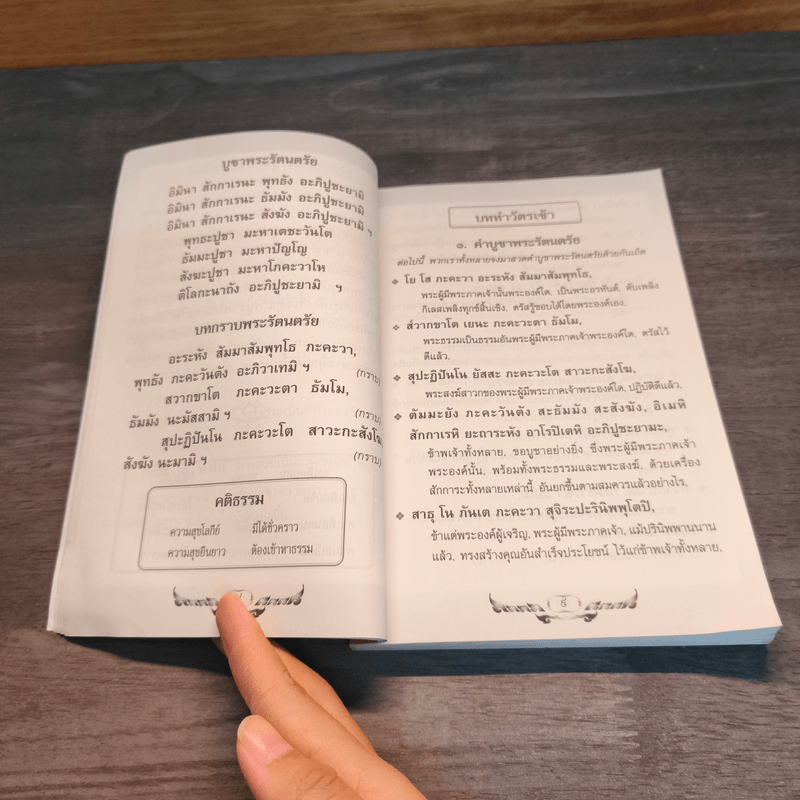 บูชาพระรัตนตรัย
อิมินา สักกาเรนะ พุทธัง อะภิปูชะยามิ
อิมินา สักกาเรนะ ธัมมัง อะภิปูชะยามิ
อิมินา สักกาเรนะ สังฆัง อะภิปูชะยามิ ฯ
พุทธะปูชา มะหาเตชะวันโต
ธัมมะปูชา มะหาปัญโญ
สังฆะปูชา มะหาโภคะวาโห
ติโลกะนาถัง อะภิปูชะยามิ ฯ
บทกราบพระรัตนตรัย
อะระหัง สัมมาสัมพุทโธ ภะคะวา,
พุทธัง ภะคะวันตัง อะภิวาเทมิ ฯ (กราบ)
สวากขาโต ภะคะวะตา ธัมโม,
ธัมมัง นะมัสสามิ ฯ (กราบ)
สุปะฏิปันโน ภะคะวะโต สาวะกะสังโฆ
สังฆัง นะมามิ ฯ (กราบ)
คติธรรม
ความสุขโลกีย์ มีได้ชั่วคราว
ความสุขยืนยาว ต้องเข้าหาธรรม
บททำวัตรเช้า
๑. คำบูชาพระรัตนตรัย
ต่อไปนี้ พวกเราทั้งหลายจงมาสวดคำบูชาพระรัตนตรัยด้วยกันเถิด
❖ โย โส ภะคะวา อะระหัง สัมมาสัมพุทโธ,
พระผู้มีพระภาคเจ้านั้นพระองค์ใด, เป็นพระอรหันต์, ดับเพลิง
กิเลสเพลิงทุกข์สิ้นเชิง, ตรัสรู้ชอบได้โดยพระองค์เอง,
❖ ส๎วากขาโต เยนะ ภะคะวะตา ธัมโม,
พระธรรมเป็นธรรมอันพระผู้มีพระภาคเจ้าพระองค์ใด, ตรัสไว้
ดีแล้ว,
❖ สุปะฏิปันโน ยัสสะ ภะคะวะโต สาวะกะสังโฆ,
พระสงฆ์สาวกของพระผู้มีพระภาคเจ้าพระองค์ใด, ปฏิบัติดีแล้ว,
❖ ตัมมะยัง ภะคะวันตัง สะธัมมัง สะสังฆัง, อิเมหิ
สักกาเรหิ ยะถาระหัง อาโรปิเตหิ อะภิปูชะยามะ,
ข้าพเจ้าทั้งหลาย, ขอบูชาอย่างยิ่ง ซึ่งพระผู้มีพระภาคเจ้า
พระองค์นั้น, พร้อมทั้งพระธรรมและพระสงฆ์, ด้วยเครื่อง
สักการะทั้งหลายเหล่านี้ อันยกขึ้นตามสมควรแล้วอย่างไร,
❖ สาธุ โน ภันเต ภะคะวา สุจิระปะรินิพพุโตปิ,
ข้าแต่พระองค์ผู้เจริญ, พระผู้มีพระภาคเจ้า, แม้ปรินิพพานนาน
แล้ว, ทรงสร้างคุณอันสำเร็จประโยชน์ ไว้แก่ข้าพเจ้าทั้งหลาย,